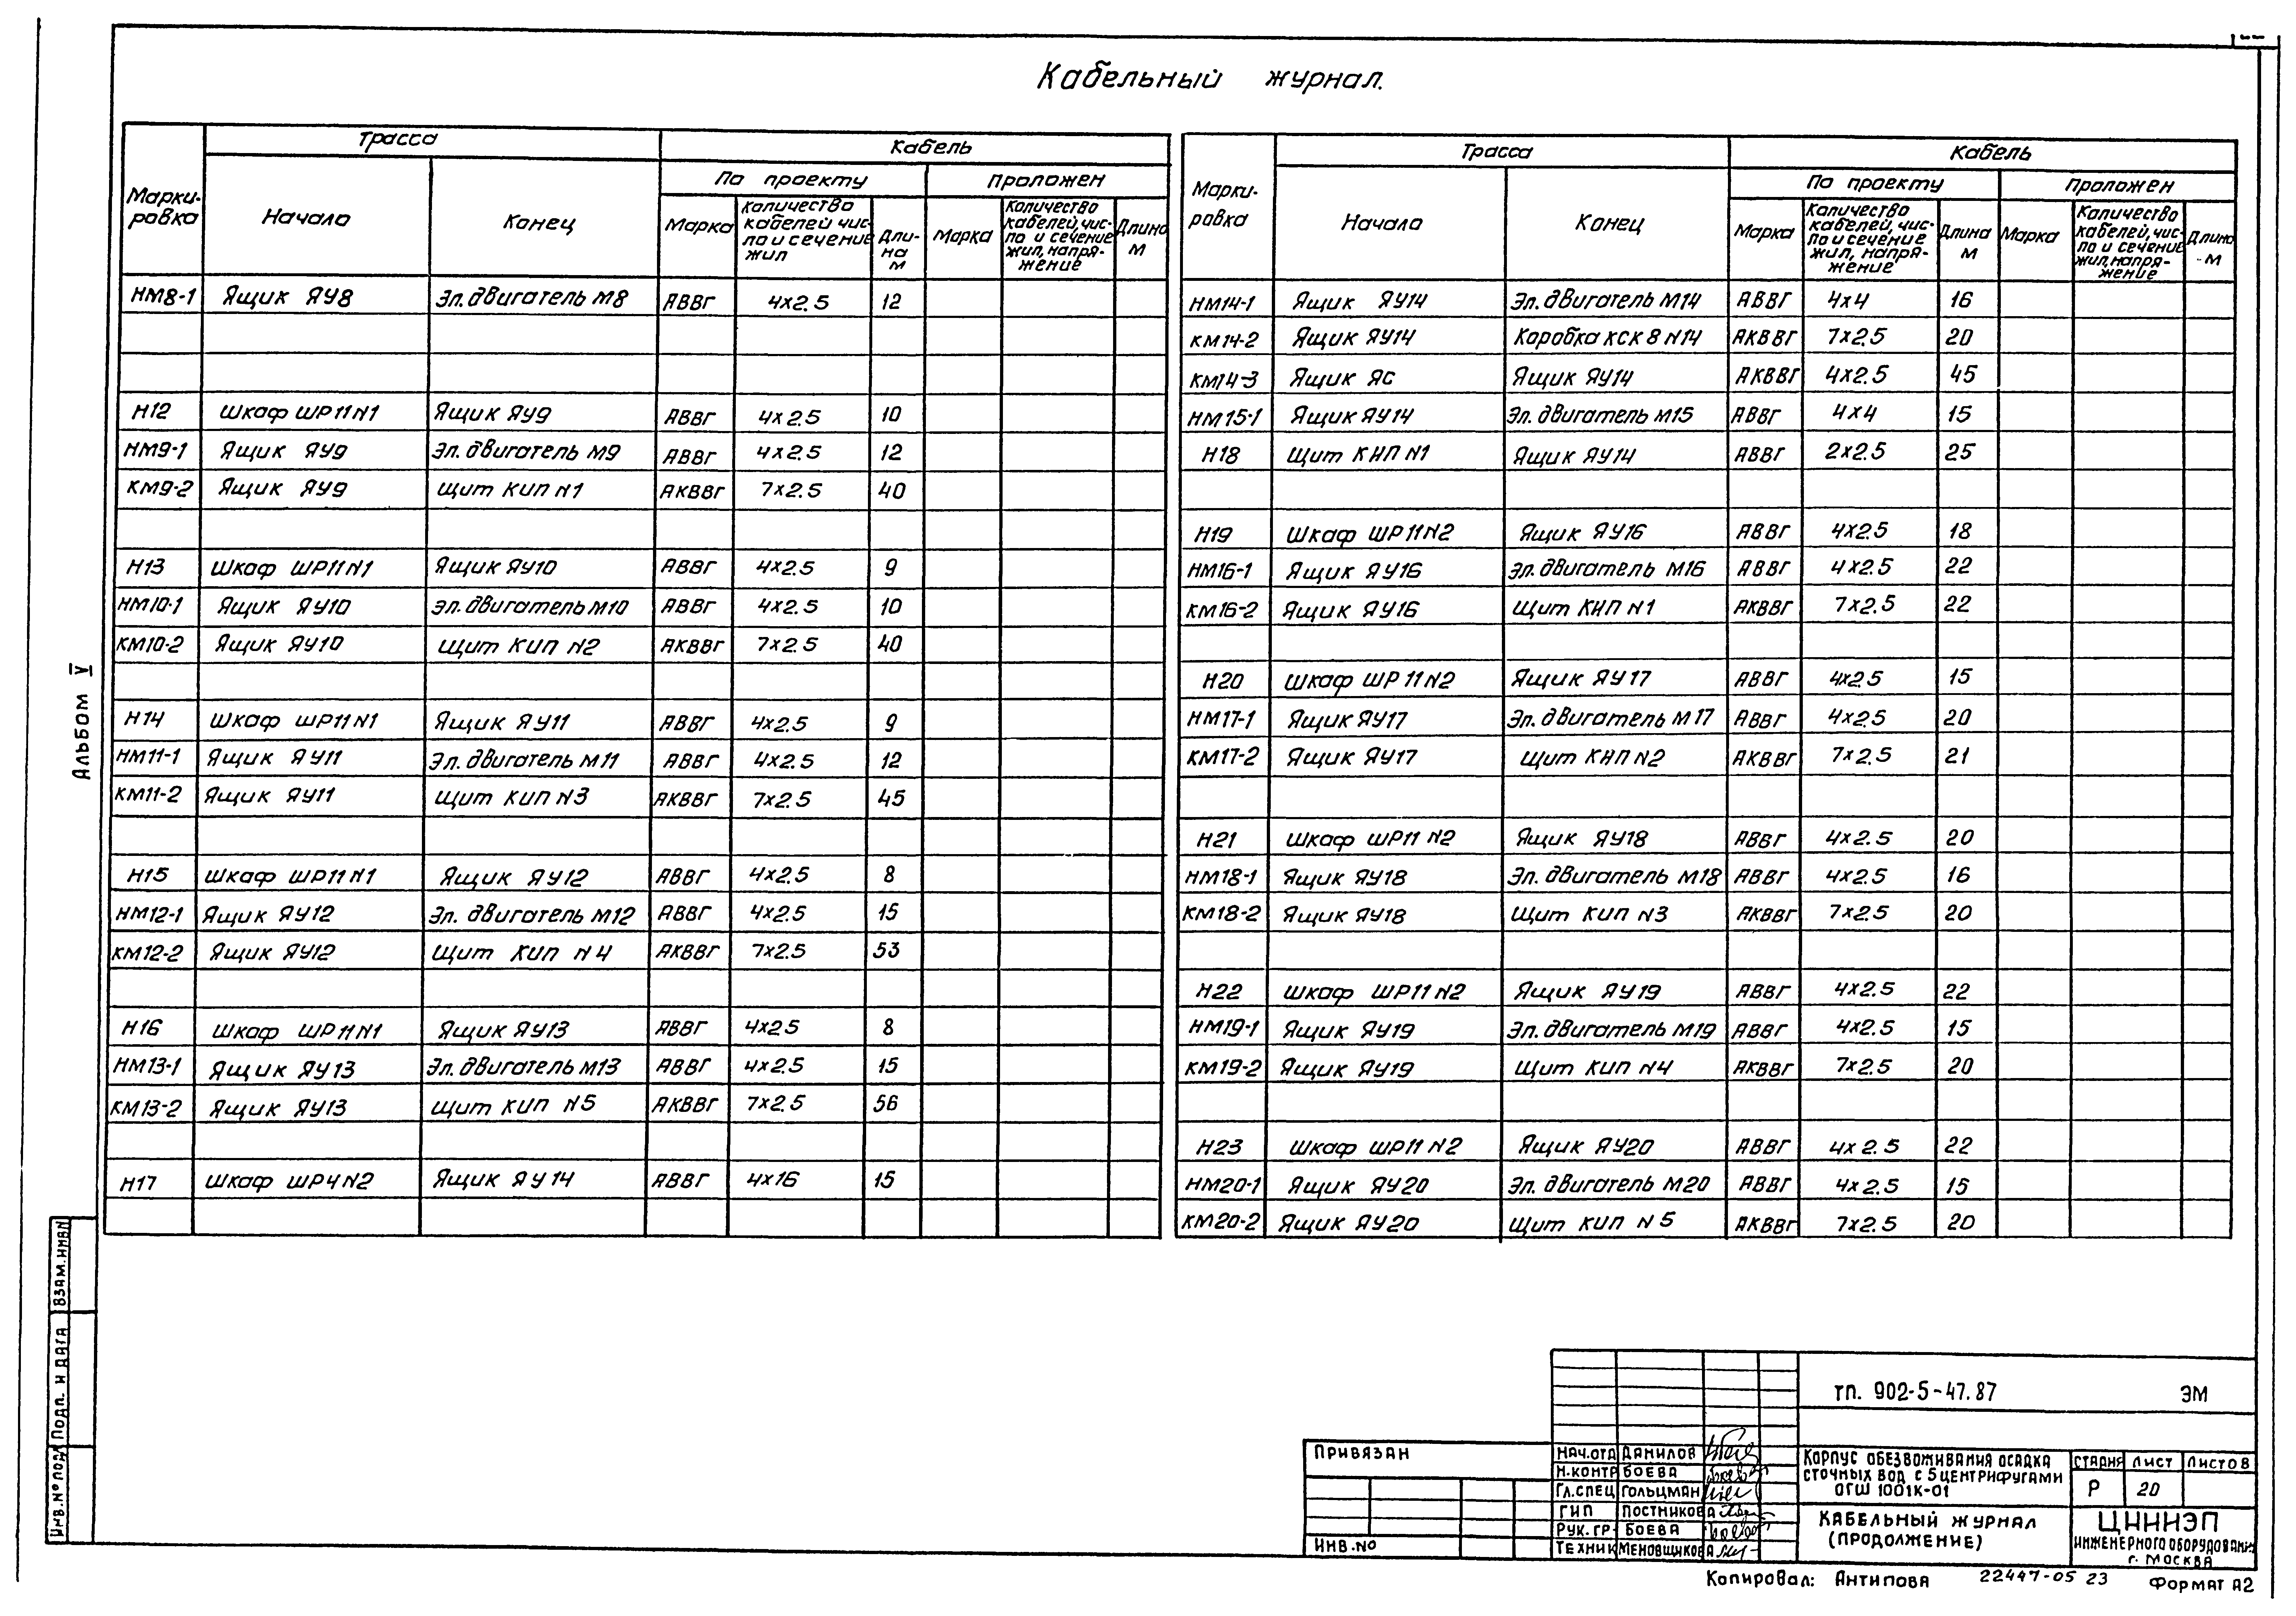 Кабельный журнал.
Марки-
ровка
Трасса
Кабель
Начало
Конец
По проекту
Проложен
Марка
Количество
кабелей чис-
ло и сечение
жил
Дли-
на
м
Марка
Количество
кабелей, чис-
ло и сечение
жил, напря-
жение
Длина
м
НМ8-1 Ящик ЯУ8 Эл. двигатель М8 АВВГ 4х2.5 12
Н12 Шкаф ШР11 N1 Ящик ЯУ9 АВВГ 4х2.5 10
НМ9-1 Ящик ЯУ9 Эл. двигатель М9 АВВГ 4х2.5 12
КМ9-2 Ящик ЯУ9 Щит КИП N1 АКВВГ 7х2.5 40
Н13 Шкаф ШР11 N1 Ящик ЯУ10 АВВГ 4х2.5 9
НМ10-1 Ящик ЯУ10 Эл. двигатель М10 АВВГ 4х2.5 10
КМ10-2 Ящик ЯУ10 Щит КИП N2 АКВВГ 7х2.5 40
Н14 Шкаф ШР11 N1 Ящик ЯУ11 АВВГ 4х2.5 9
НМ11-1 Ящик ЯУ11 Эл. двигатель М11 АВВГ 4х2.5 12
КМ11-2 Ящик ЯУ11 Щит КИП N3 АКВВГ 7х2.5 45
Н15 Шкаф ШР11 N1 Ящик ЯУ12 АВВГ 4х2.5 8
НМ12-1 Ящик ЯУ12 Эл. двигатель М12 АВВГ 4х2.5 15
КМ12-2 Ящик ЯУ12 Щит КИП N4 АКВВГ 7х2.5 53
Н16 Шкаф ШР11 N1 Ящик ЯУ13 АВВГ 4х25 8
НМ13-1 Ящик ЯУ13 Эл. двигатель М13 АВВГ 4х2.5 15
КМ13-2 Ящик ЯУ13 Щит КИП N5 АКВВГ 7х2.5 56
Н17 Шкаф ШР4 N2 Ящик ЯУ14 АВВГ 4х16 15
Марки-
ровка
Трасса
Кабель
Начало
Конец
По проекту
Проложен
Марка
Количество
кабелей, чис-
ло и сечение
жил, напря-
жение
Длина
м
Марка
Количество
кабелей, чис-
ло и сечение
жил, напря-
жение
Длина
м
НМ14-1 Ящик ЯУ14 Эл. двигатель М14 АВВГ 4х4 16
КМ14-2 Ящик ЯУ14 Коробка КСК 8 N14 АКВВГ 7х2.5 20
КМ14-3 Ящик ЯС Ящик ЯУ14 АКВВГ 4х2.5 45
НМ15-1 Ящик ЯУ14 Эл. двигатель М15 АВВГ 4х4 15
Н18 Щит КИП N1 Ящик ЯУ14 АВВГ 2х2.5 25
Н19 Шкаф ШР11 N2 Ящик ЯУ16 АВВГ 4х2.5 18
НМ16-1 Ящик ЯУ16 Эл. двигатель М16 АВВГ 4х2.5 22
КМ16-2 Ящик ЯУ16 Щит КИП N1 АКВВГ 7х2.5 22
Н20 Шкаф ШР11 N2 Ящик ЯУ17 АВВГ 4х2.5 15
НМ17-1 Ящик ЯУ17 Эл. двигатель М17 АВВГ 4х2.5 20
КМ17-2 Ящик ЯУ17 Щит КИП N2 АКВВГ 7х2.5 21
Н21 Шкаф ШР11 N2 Ящик ЯУ18 АВВГ 4х2.5 20
НМ18-1 Ящик ЯУ18 Эл. двигатель М18 АВВГ 4х2.5 16
КМ18-2 Ящик ЯУ18 Щит КИП N3 АКВВГ 7х2.5 20
Н22 Шкаф ШР11 N2 Ящик ЯУ19 АВВГ 4х2.5 22
НМ19-1 Ящик ЯУ19 Эл. двигатель М19 АВВГ 4х2.5 15
КМ19-2 Ящик ЯУ19 Щит КИП N4 АКВВГ 7х2.5 20
Н23 Шкаф ШР11 N2 Ящик ЯУ20 АВВГ 4х2.5 22
НМ20-1 Ящик ЯУ20 Эл. двигатель М20 АВВГ 4х2.5 15
КМ20-2 Ящик ЯУ20 Щит КИП N5 АКВВГ 7х2.5 20
Альбом V
ВЗАМ. ИНВ N
ПОДП. И ДАТА
ИНВ. № ПОДЛ
ПРИВЯЗАН
ИНВ. №
НАЧ. ОТД ДАНИЛОВ
Н.КОНТР БОЕВА
ГЛ.СПЕЦ ГОЛЬЦМАН
ГИП ПОСТНИКОВА
РУК. ГР. БОЕВА
ТЕХНИК МЕНОВЩИКОВА
ТП. 902-5-47.87 ЭМ
КОРПУС ОБЕЗВОЖИВАНИЯ ОСАДКА
СТОЧНЫХ ВОД С 5 ЦЕНТРИФУГАМИ
ОГШ 1001К-01
СТАДИЯ ЛИСТ ЛИСТОВ
Р 20
КАБЕЛЬНЫЙ ЖУРНАЛ
(ПРОДОЛЖЕНИЕ)
ЦНИИЭП
ИНЖЕНЕРНОГО ОБОРУДОВАНИЯ
Г. МОСКВА
Копировал: Антипова 22447-05 23 Формат А2